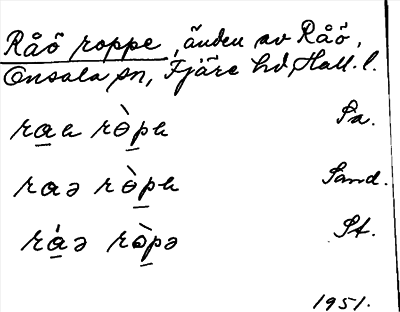 Råö roppe, änden av Råö,
Onsala sn, Fjäre hd, Hall. l.
ra̲h rò̲p̲h Sa.
raə rò̲p̲h Sand.
rá̲ə rò̲p̲ə St.
1951.